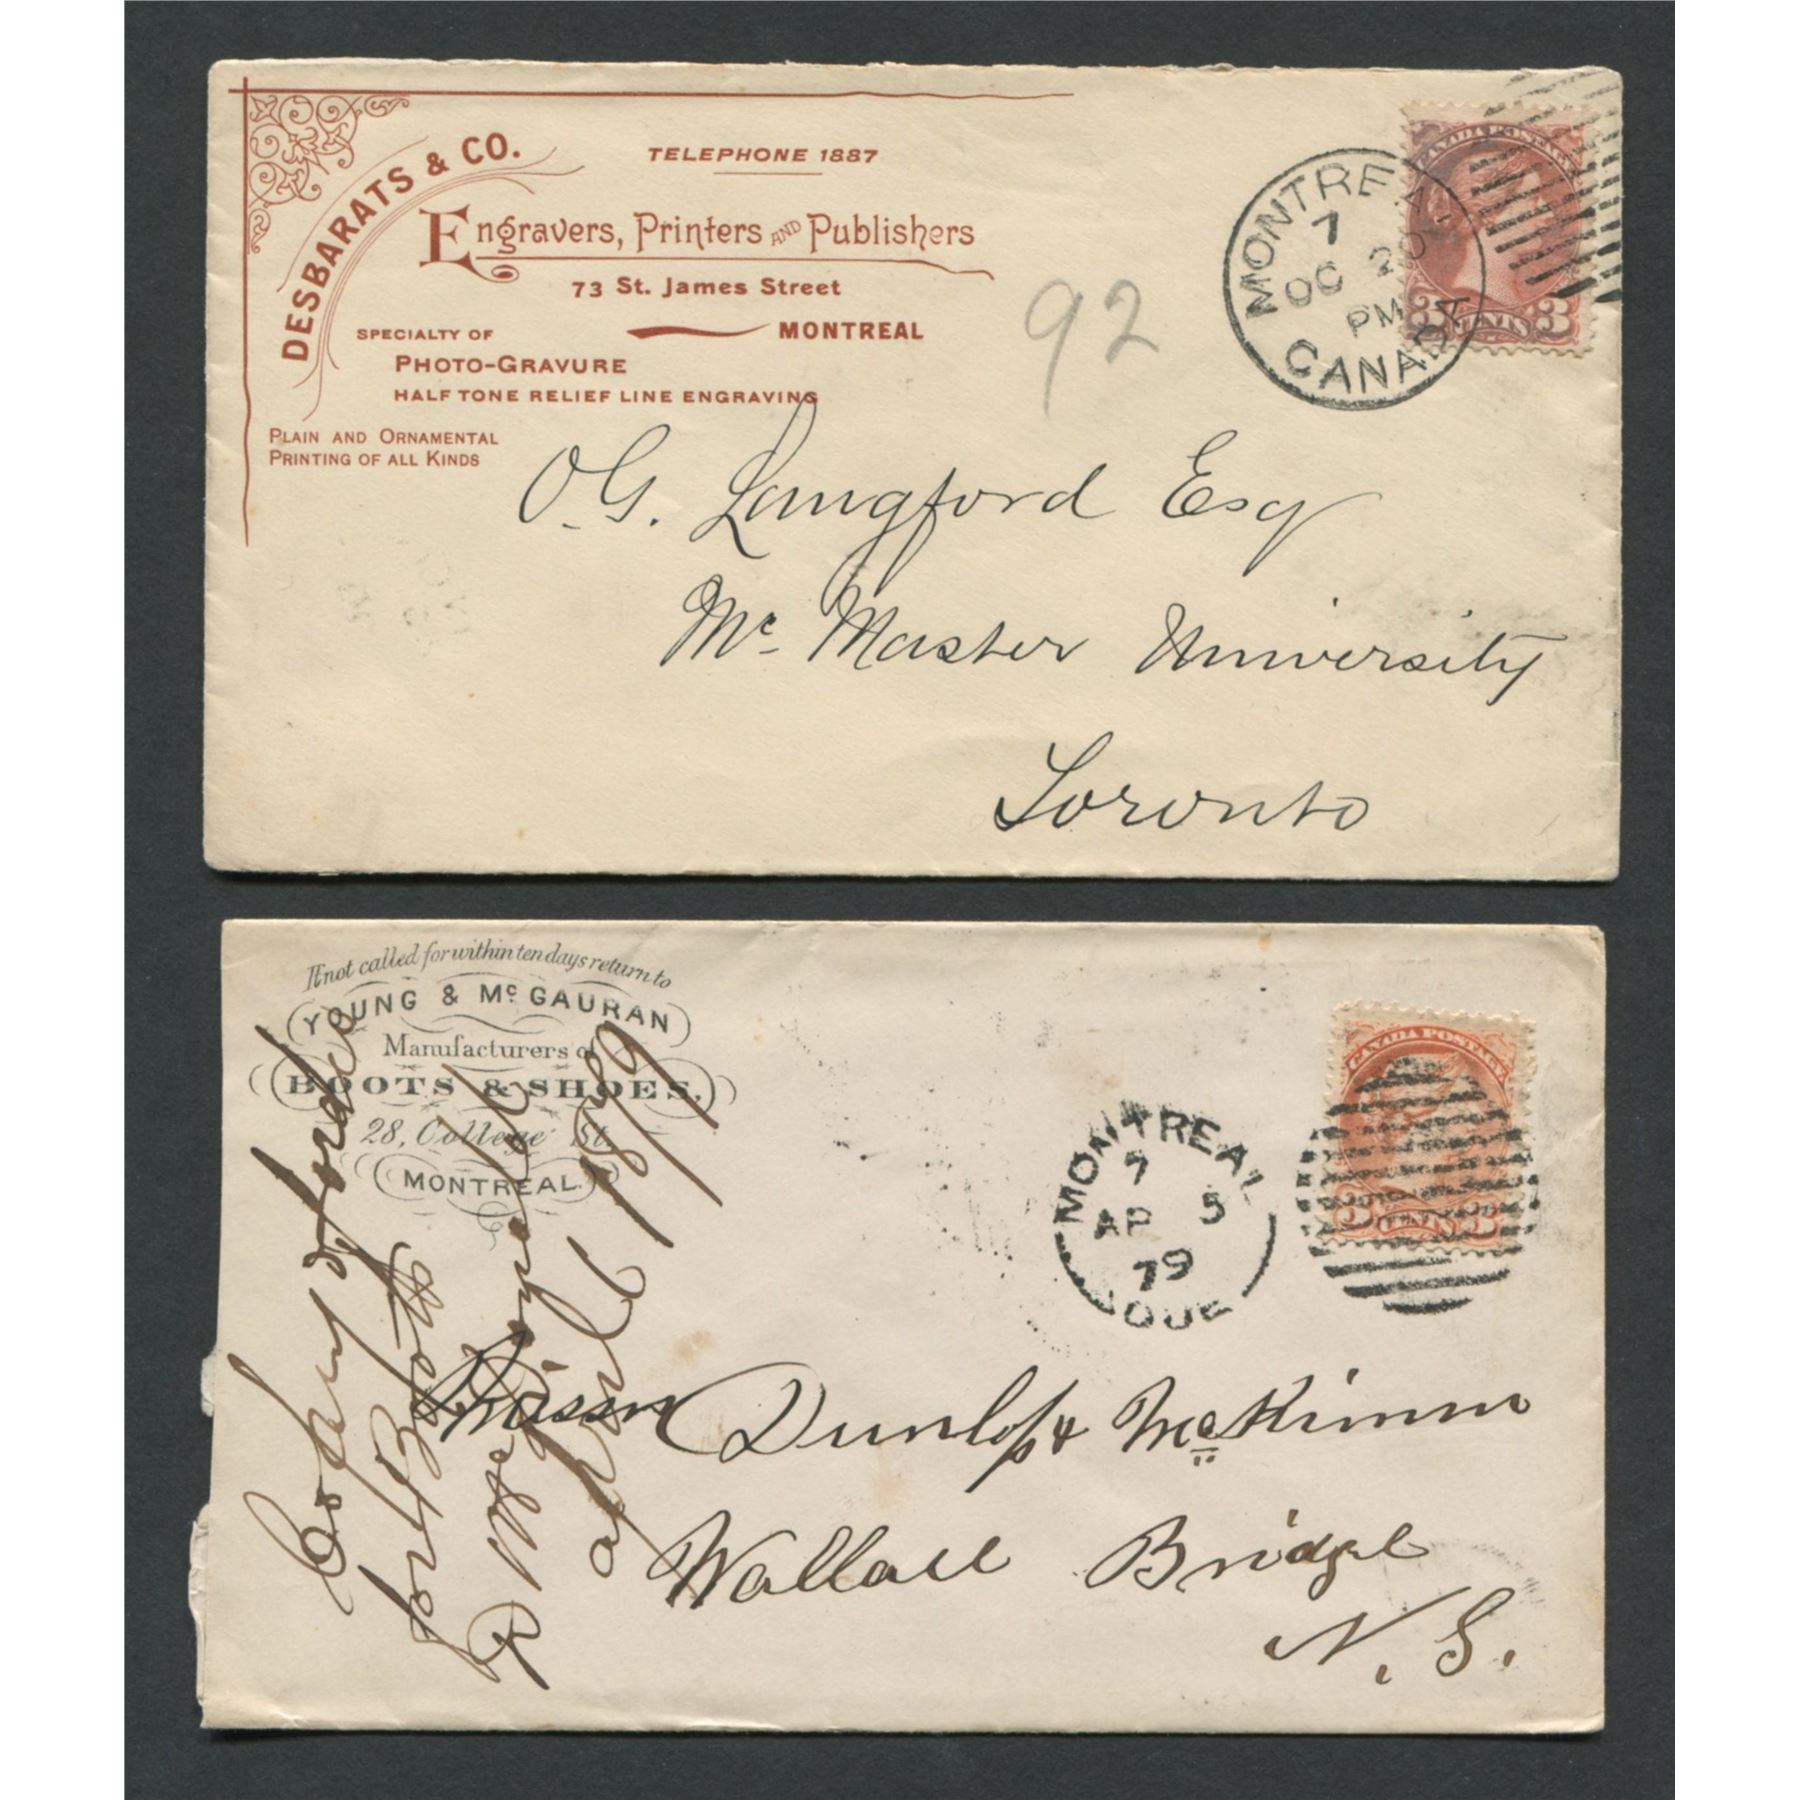 DESBARATS & CO.
TELEPHONE 1887
Engravers, Printers AND Publishers
73 St. James Street
MONTREAL
SPECIALTY OF
PHOTO-GRAVURE
HALF TONE RELIEF LINE ENGRAVING
PLAIN AND ORNAMENTAL
PRINTING OF ALL KINDS
92
MONTREAL
7
OC 20
PM
CANADA
CANADA POSTAGE
3 CENTS 3
O.G. Langford Esq
Mc Master University
Toronto
If not called for within ten days return to
YOUNG & Mc GAURAN
Manufacturers of
BOOTS & SHOES.
28, College St
MONTREAL.
Copy of order
for Boots
april 1879
MONTREAL
7
AP 5
79
QUE
CANADA POSTAGE
3 CENTS 3
Dunlop & McKimm
Wallace Bridge
N.S.